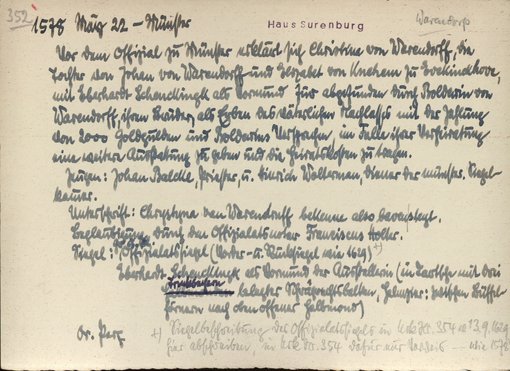 352
1578 März 22 - Münster
Haus Surenburg
Warendorf
Vor dem Offizial zu Münster erklärt sich Christina von Warendorff, die
Tochter von Johan von Warendorff und Elizabet von Knehem zu
mit Eberhardt Schencklingk als Vormund für abgefunden durch Boldewin von
Warendorff, ihren Bruder, als Erben des väterlichen Nachlasses mit der Zahlung
von 2000 Goldgulden und Boldewins Versprechen, im Falle ihrer Verheiratung
eine weitere Ausstattung zu geben und die Heiratskosten zu tragen.
Zeugen: Johan Priester, u. Hinrich Wolterman, Diener der münster. Siegel-
kammer.
Unterschrift: Chrystyna van Warendorff bekenne also
Beglaubigung durch den Offizialatsnotar Franciscus Holter.
Siegel: Offizialatsiegel (Vorder- u. Rücksiegel wie 1629) +)
Eberhardt Schencklingk als Vormund der Ausstellerin (in Kartusche mit drei
belegter Schrägrechtsbalken, Helmzier: zwischen Büffel-
hörnern nach oben offener Halbmond)
Or. Perg.
+) Siegelbeschreibung des Offizialatsiegels in Urk. Nr. 354 13.9.1629
hier abschreiben, in Urk. Nr. 354 dafür nur Verweis - wie 1578